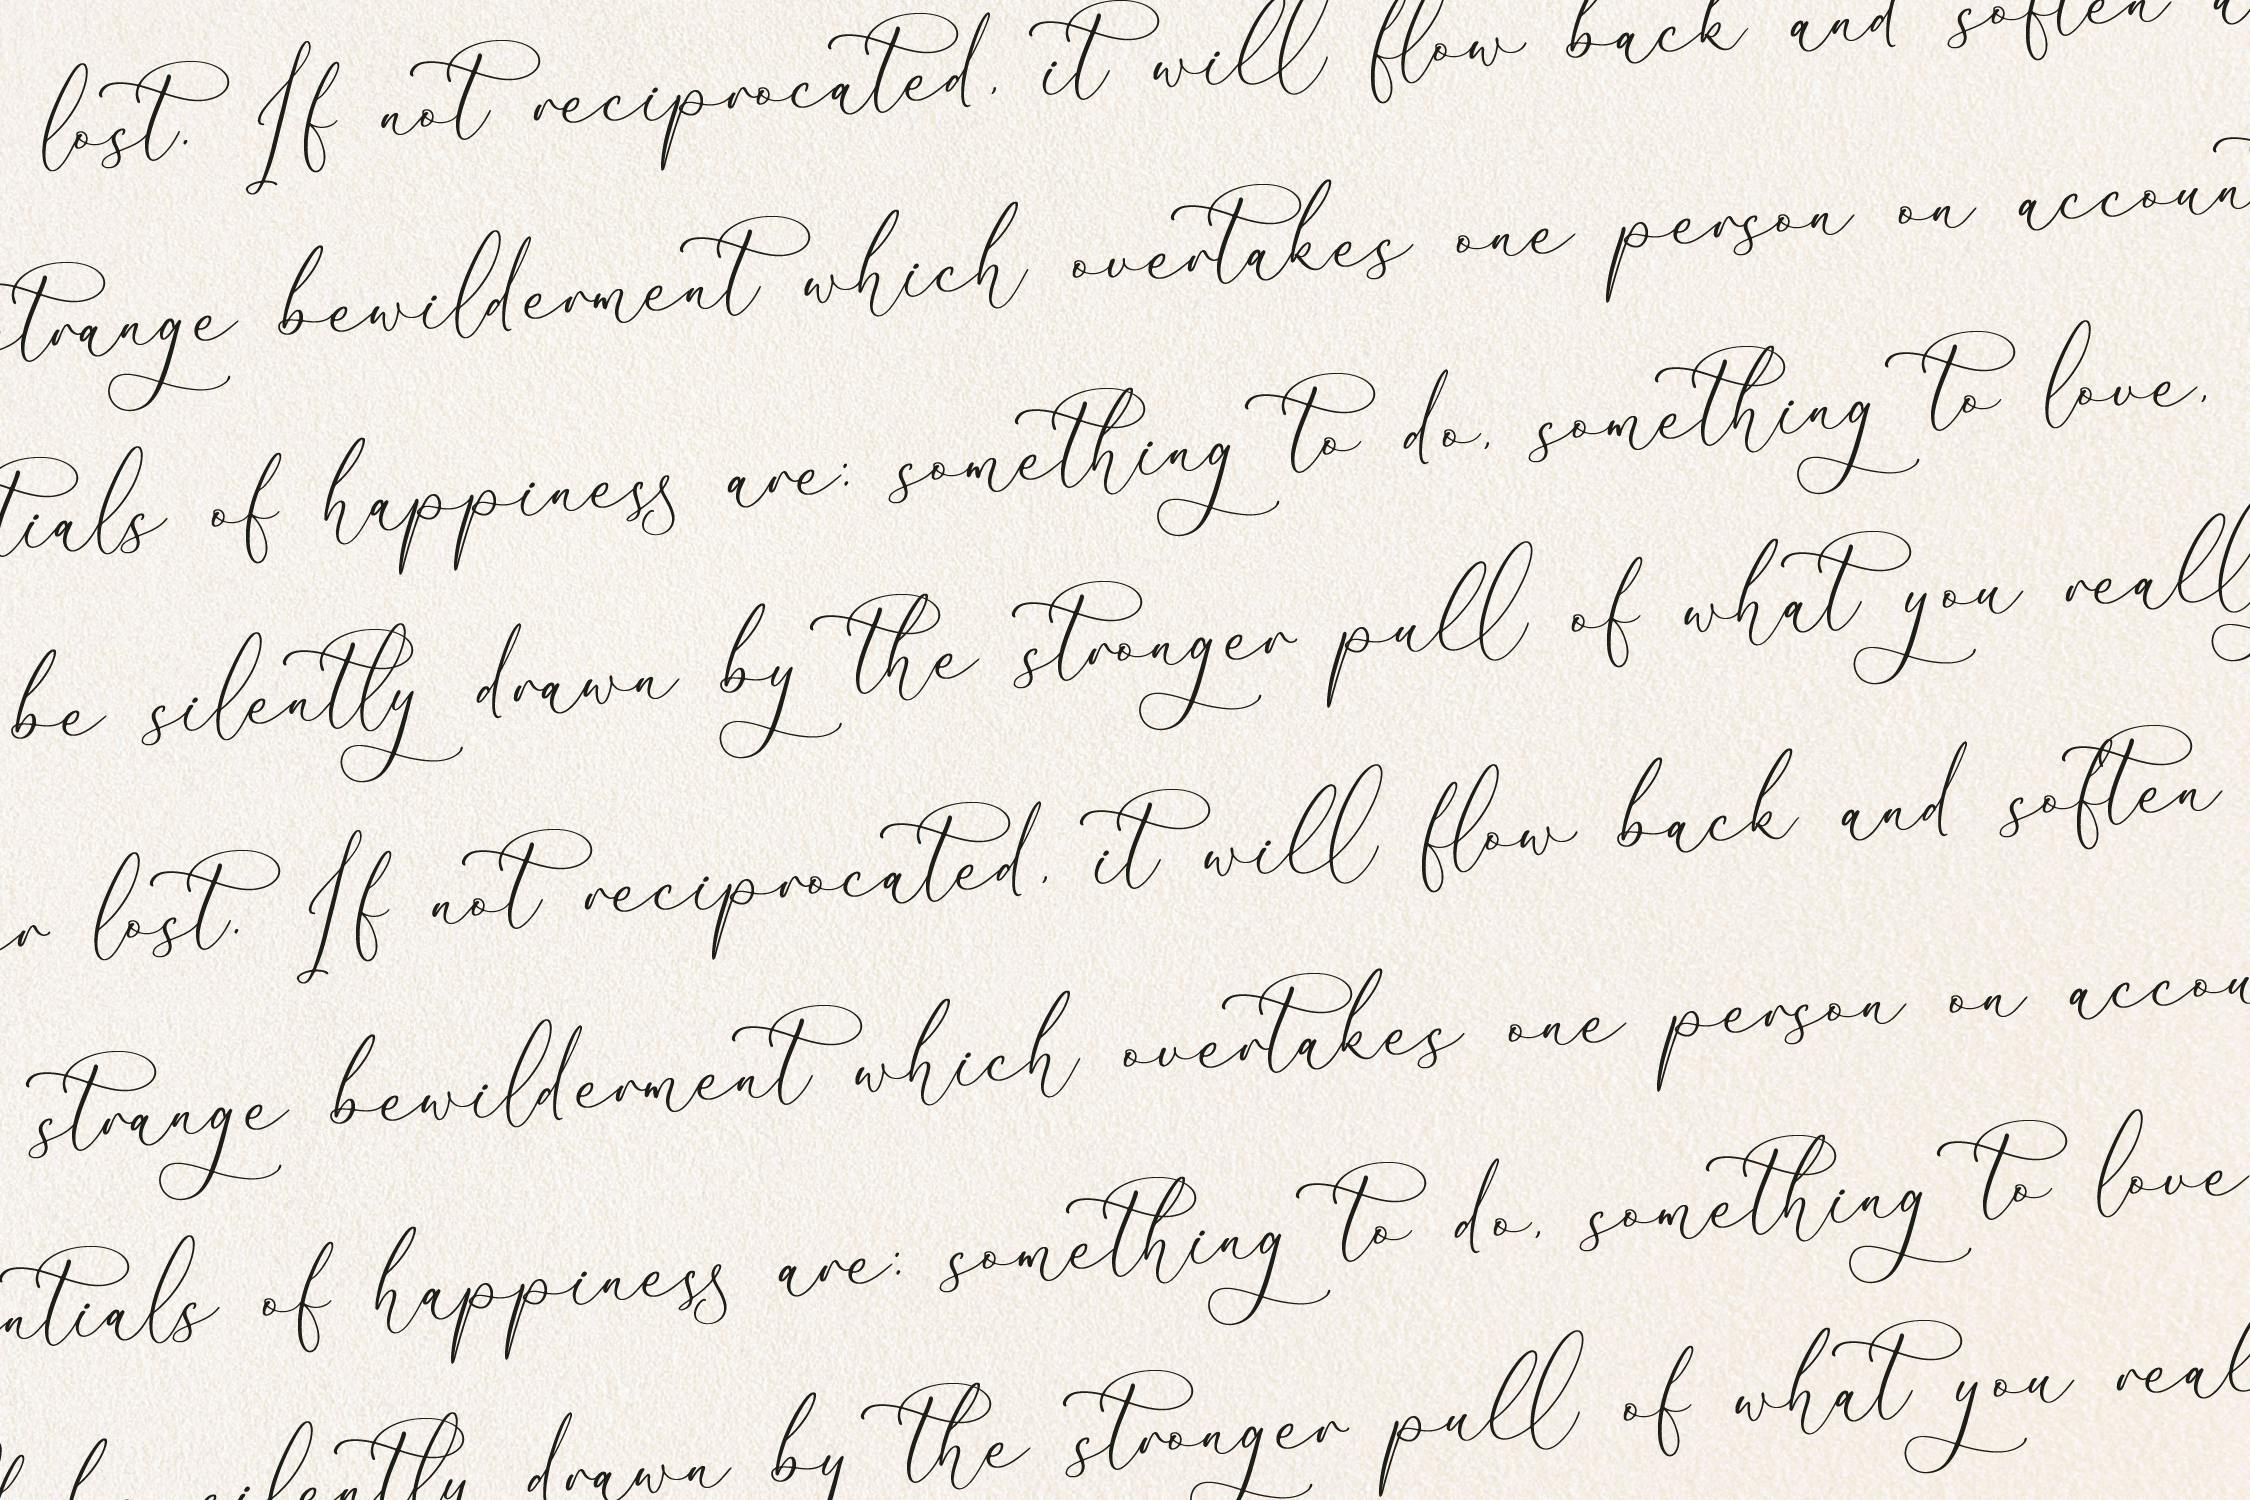 lost. If not reciprocated, it will flow back and soften
strange bewilderment which overtakes one person on account
tials of happiness are: something to do, something to love,
be silently drawn by the stronger pull of what you really
r lost. If not reciprocated, it will flow back and soften
strange bewilderment which overtakes one person on accou
ntials of happiness are: something to do, something to love
be silently drawn by the stronger pull of what you real